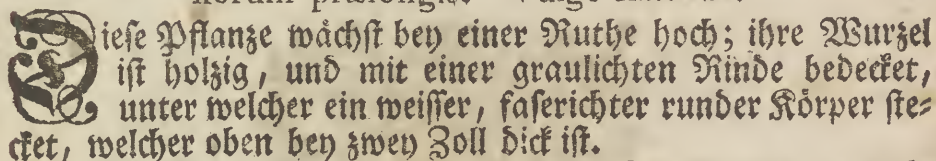 Dieſe Pflanze wächſt bey einer Ruthe hoch; ihre Wurzel
iſt holzig, und mit einer graulichten Rinde bedecket,
unter welcher ein weiſſer, faſerichter runder Körper ſte-
cket, welcher oben bey zwey Zoll dick iſt.